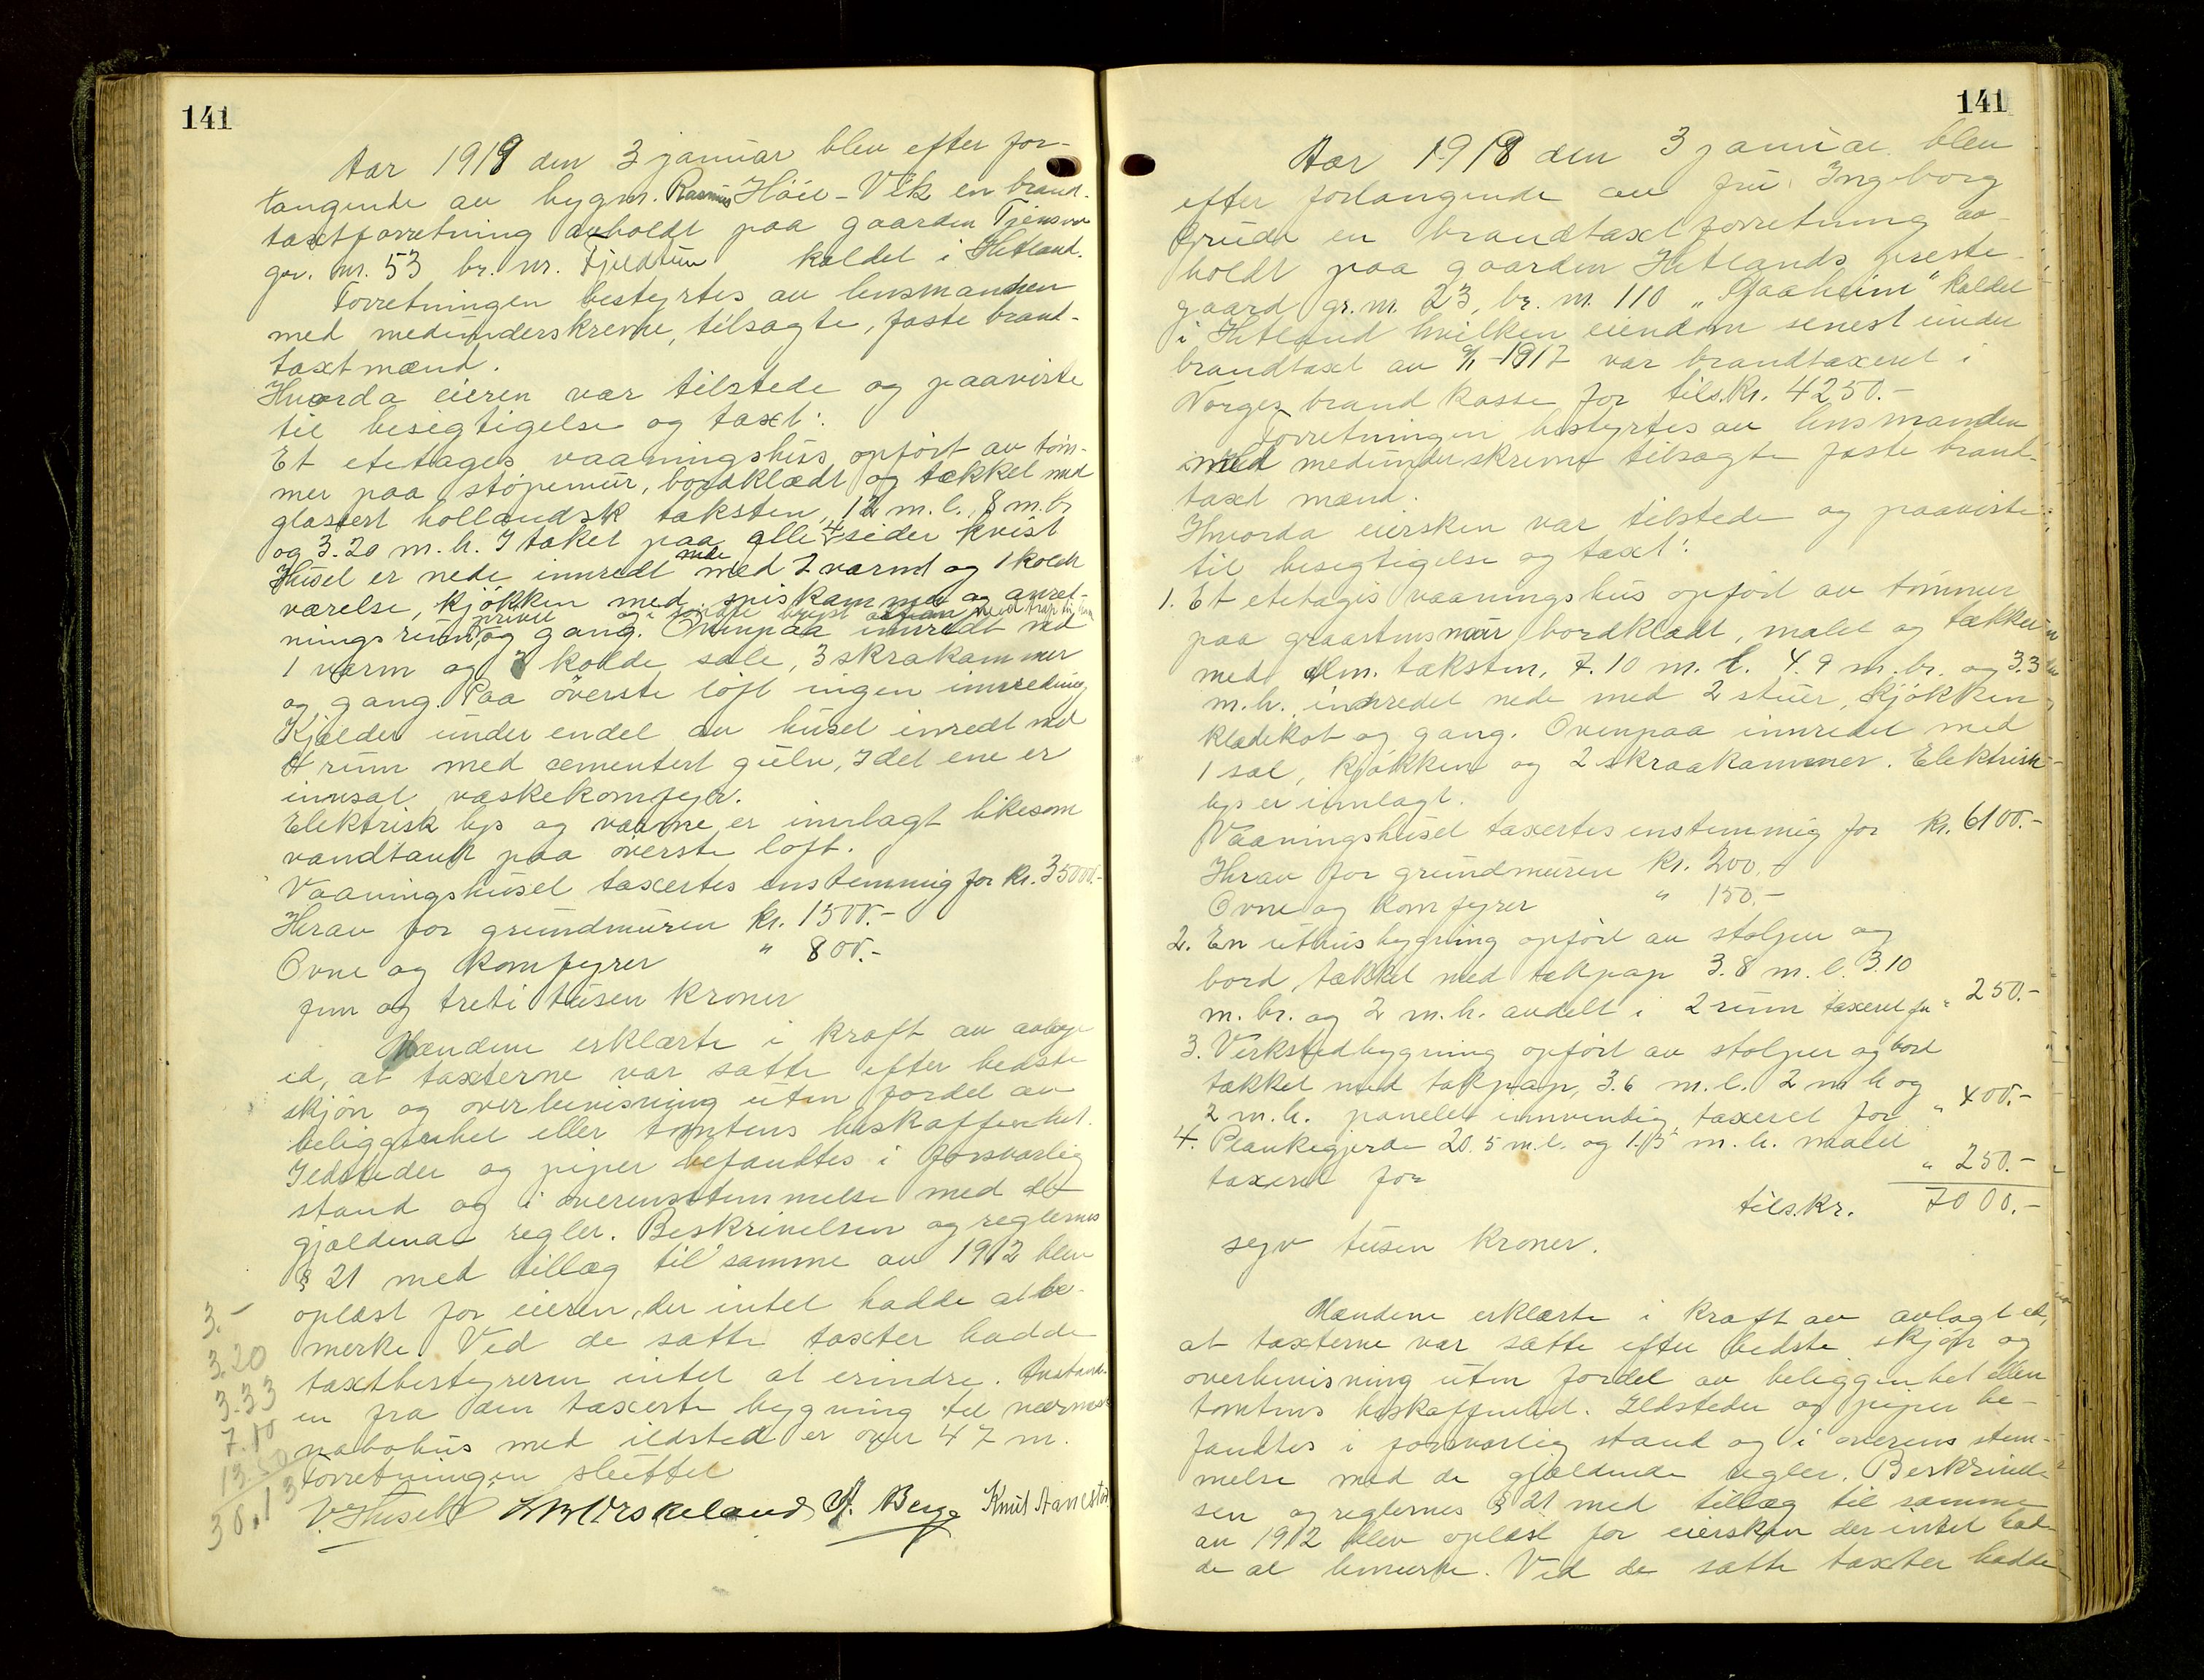 141
Aar 1919 den 3 januar blev efter for-
langende av bygm. Rasmus Höie-Vik en brand-
taxtforretning avholdt paa gaarden Tjensvol
gr. nr. 53 br. nr. Fjeldtun kaldet i Hetland.
Forretningen bestyrtes av lensmanden
med medunderskrevne, tilsagte, faste brand-
taxtmænd.
Hvorda eieren var tilstede og paaviste
til besigtigelse og taxt:
Et etetages vaaningshus opført av tøm-
mer paa støpemur, bordklædt og tækket med
glassert hollandsk taksten, 12 m. l., 8 m. b.
og 3.20 m. h. I taket paa alle 4 sider kvist
Huset er nede innredt med 2 varmt og 1 koldt
værelse, kjøkken med spiskammer og anret-
ningsrum, privet og gang. Ovenpaa innredt med
1 varm og 3 kolde sale, 3 skrakammer
og gang. Paa överste löft ingen innredning
Kjælder under endel av huset inredt med
4 rum med cementert gulv, I det ene er
innsat vaskekomfyr.
Elektrisk lys og varme er innlagt likesom
vandtank paa överste loft.
Vaaningshuset taxertes enstemmig for kr. 35000.-
Herav for grundmuren kr. 1500.-
Ovne og komfyrer " 800.-
fem og treti tusen kroner
Mændene erklærte i kraft av avlagt
ed, at taxterne var satte efter bedste
skjön og overbevisning uten fordel av
beliggenhet eller tomtens beskaffenhet.
Ildsteder og piper befandtes i forsvarlig
stand og i overensstemmelse med de
gjældende regler. Beskrivelsen og reglernes
§ 21 med tillæg til samme av 1912 blev
oplæst for eieren, der intet hadde at be-
merke. Ved de satte taxter hadde
taxtbestyreren intet at erindre. Avstand-
en fra den taxerte bygning til nærmeste
nabohus med ildsted er over 47 m.
Forretningen sluttet
V. Husebø Urskeland A. Berge Knut Aanestad
3.-
3.20
3.33
7.10
13.50
30.13
141
Aar 1918 den 3 januar blev
efter forlangende av fru Ingeborg
Gruda en brandtaxtforretning av-
holdt paa gaarden Hetlands preste-
gaard gr. nr. 23, br. nr. 110 „Haaheim" kaldet
i Hetland hvilken eiendom senest under
brandtaxt av 9/1-1917 var brandtaxeret i
Norges brandkasse for tils. kr. 4250.-
Forretningen bestyrtes av lensmanden
med medunderskrevne tilsagte faste brand-
taxt mænd.
Hvorda eiersken var tilstede og paaviste
til besigtigelse og taxt:
1. Et etetages vaaningshus opført av tømmer
paa graastensmur bordklædt, malet og tækket
med alm. taksten, 7.10 m. l. 4.9 m. br. og 3.3
m. h. innredet nede med 2 stuer, kjøkken,
klædekot og gang. Ovenpaa innredet med
1 sal, kjøkken og 2 skraakammer. Elektrisk
lys er innlagt.
Vaaningshuset taxertes enstemmig for kr. 6100.-
Herav for grundmuren kr. 200.-
Ovne og komfyrer " 150.-
2. En uthusbygning opført av stolper og
bord, tækket med takpap 3.8 m. l. 3.10
m. br. og 2 m. h. avdelt i 2 rum taxeret for " 250.-
3. Verkstedbygning opført av stolper og bord
tækket med takpap, 3.6 m. l. 2 m b og
2 m. h. panelet innvendig taxeret for " 400.-
4. Plankegjerde 20.5 m. l. og 1.15 m. h. malet
taxeret for " 250.-
tils. kr. 7000.-
syv tusen kroner.
Mændene erklærte i kraft av avlagt ed,
at taxterne var satte efter bedste skjön og
overbevisning uten fordel av beliggenhet eller
tomtens beskaffenhet. Ildsteder og piper be-
fandtes i forsvarlig stand og i overens stem-
melse med de gjældende regler. Beskrivel-
sen og reglernes § 21 med tillæg til samme
av 1912 blev oplæst for eiersken der intet had-
de at bemerke. Ved de satte taxter hadde